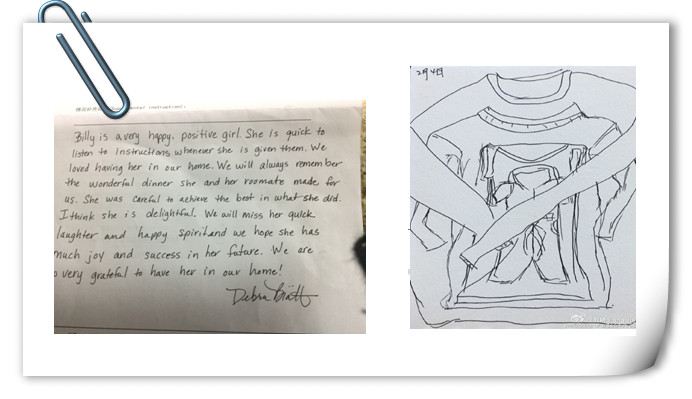 Billy is a very happy, positive girl. She is quick to
listen to instructions whenever she is given them. We
loved having her in our home. We will always remember
the wonderful dinner she and her roomate made for
us. She was careful to achieve the best in what she did.
I think she is delightful. We will miss her quick
laughter and happy spirit and we hope she has
much joy and success in her future. We are
very grateful to have her in our home!
Debra
2月4日